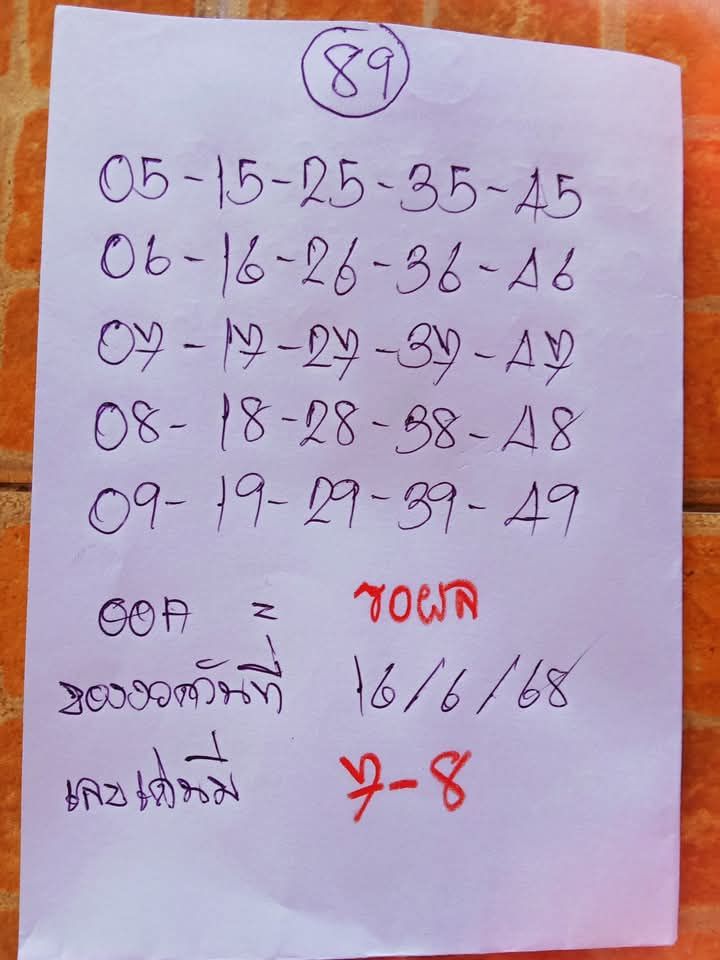 89
05-15-25-35-45
06-16-26-36-46
07-17-27-37-47
08-18-28-38-48
09-19-29-39-49
ออก = รอผล
ของงวดวันที่ 16/6/68
เลขเด่นมี 7-8